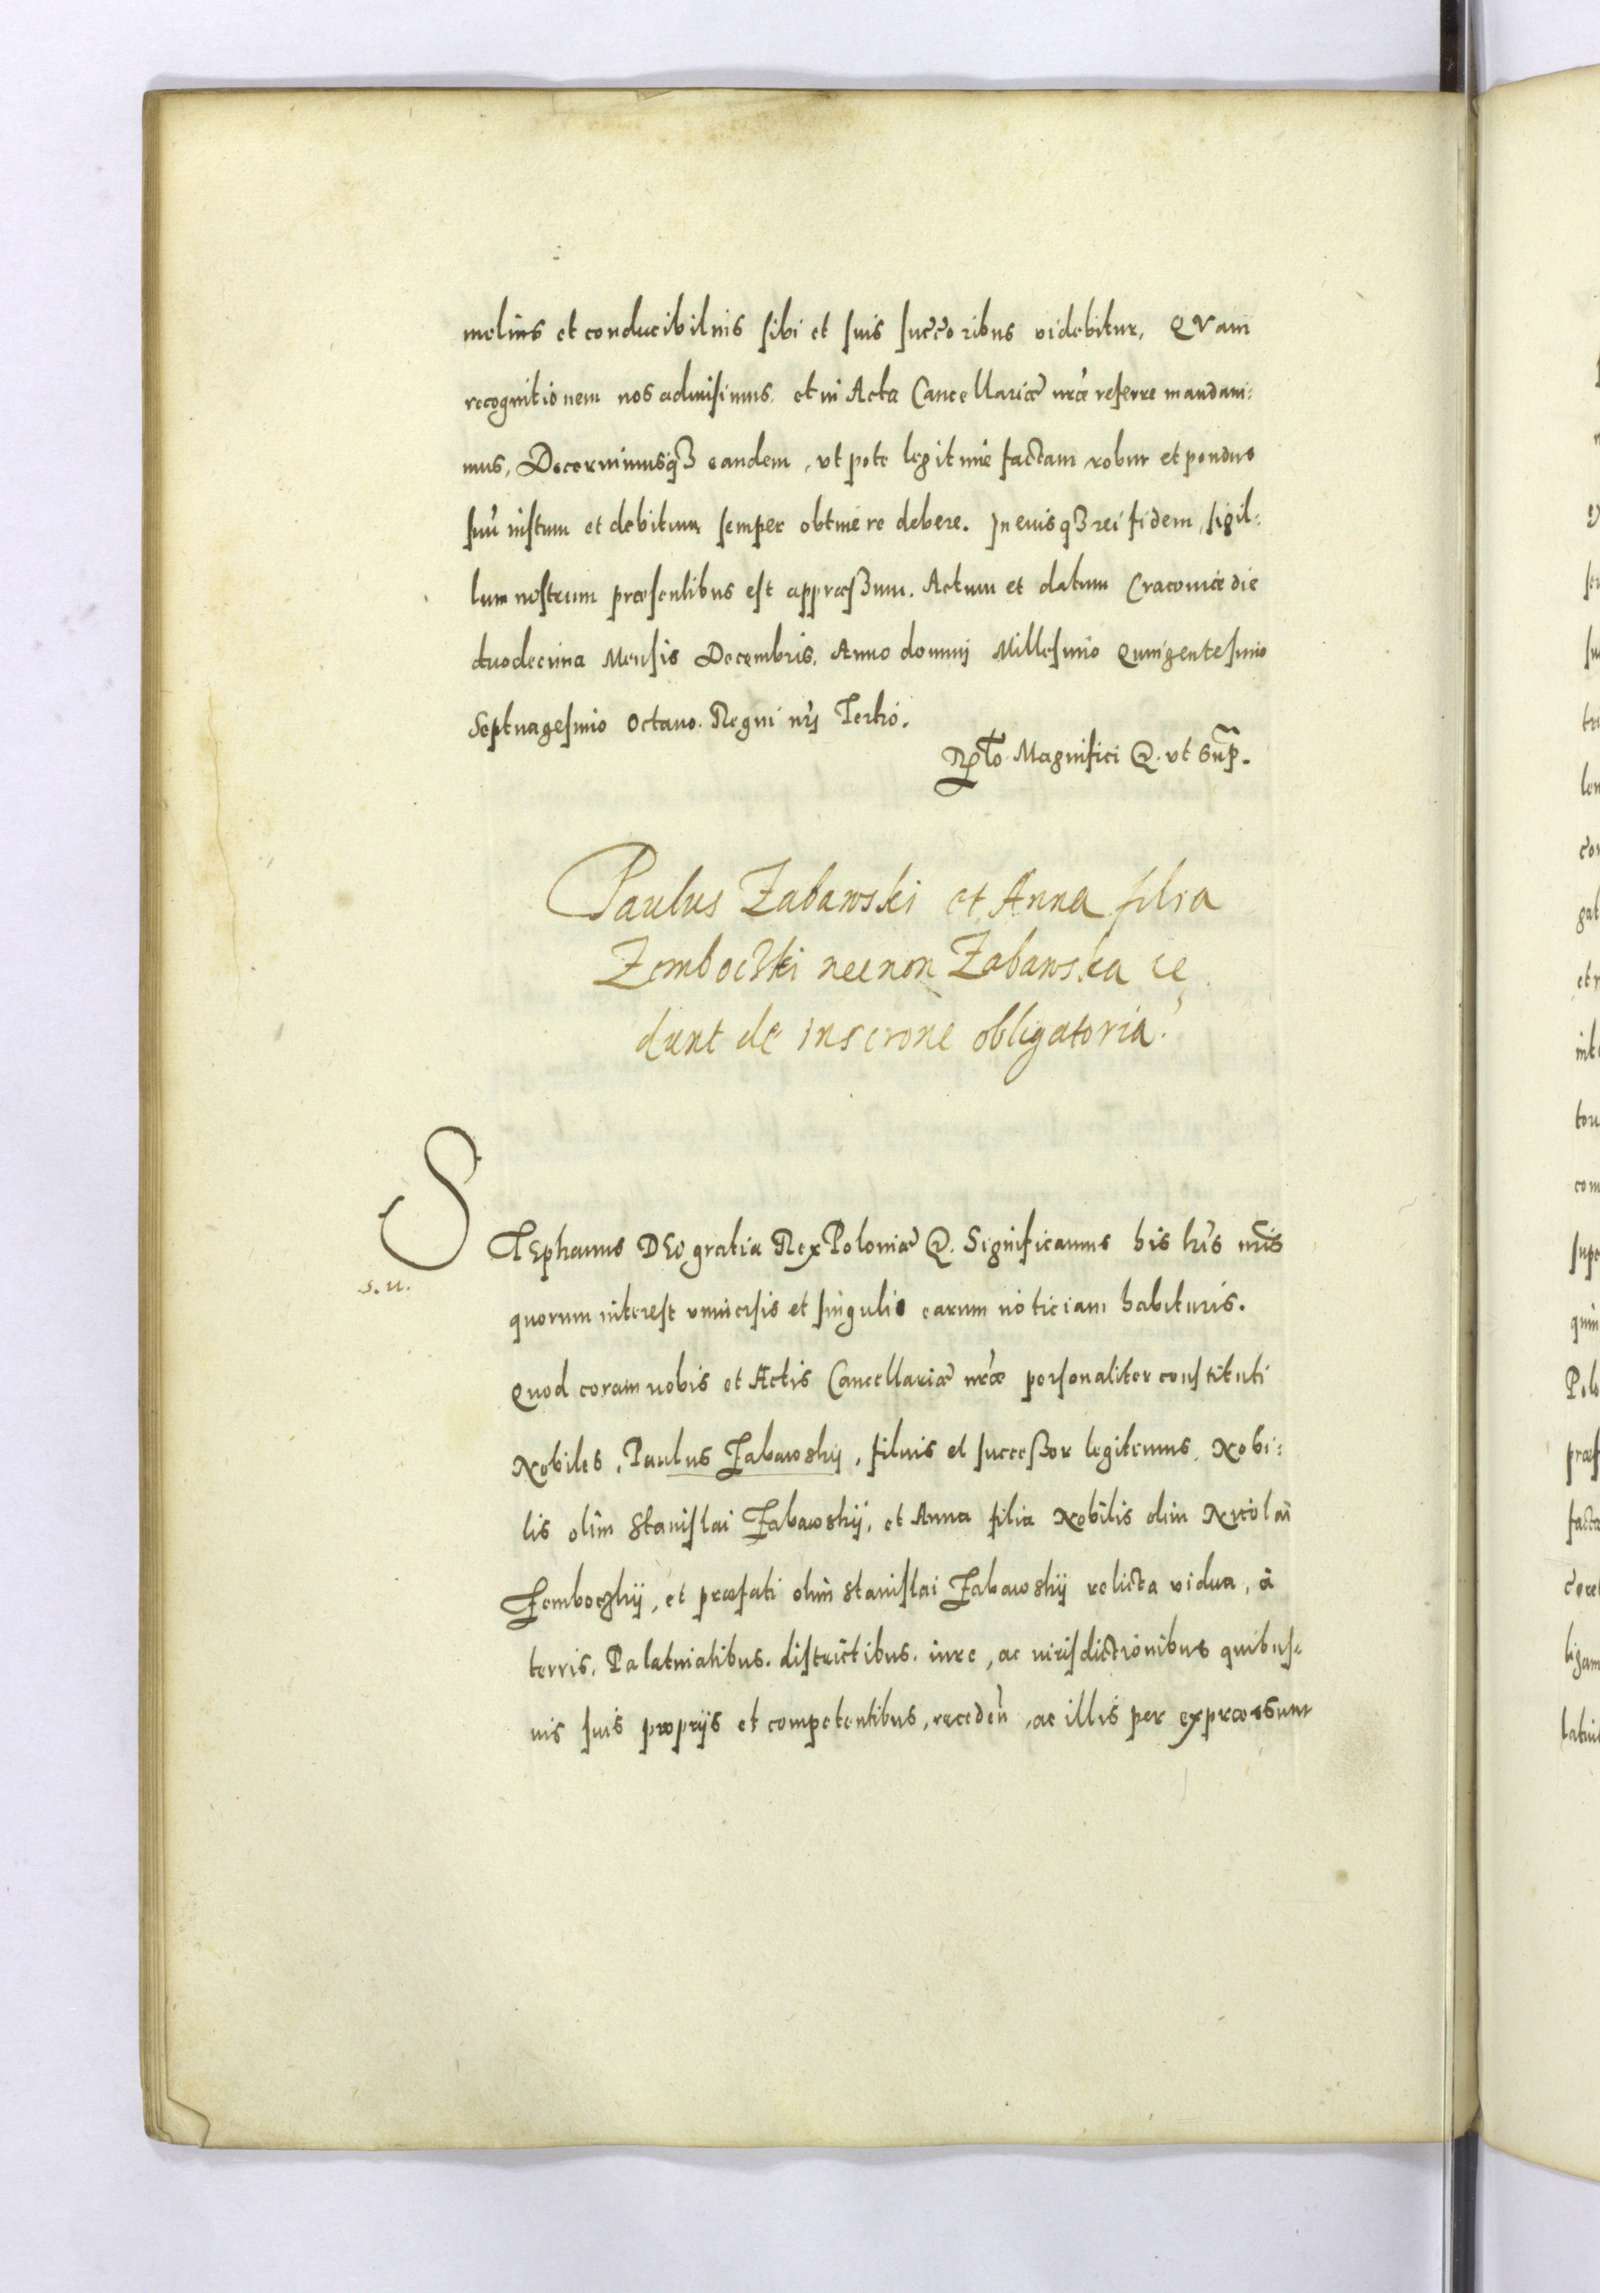 melius et conducibilius sibi et suis succōribus videbitur, QVam
recognitionem nos admisimus, et in Acta Cancellariæ nræ referre mandaui:
mus, Decernimusq3 eandem, vt pote legitimè factam robur et pondus
suū iustum et debitum semper obtinere debere. In cuius q3 rei fidem, sigil:
lum nostrum præsentibus est appræssum. Actum et datum Cracouiæ die
duodecima Mensis Decembris, Anno domini Millesimo Quingentesimo
Septuagesimo Octauo. Regni nri Tertio.
Rlto Magnifici &. vt Sup.
Paulus Zabawski et Anna filia
Zemboczki necnon Zabawska ce
dunt de inscrone obligatoria.
STEphanus DEI gratia Rex Poloniæ &. Significamus his lris nris
s. n.
quorum interest vniuersis et singulis earum noticiam habituris.
Quod coram nobis et Actis Cancellariæ nræ personaliter constituti
Nobiles, Paulus Zabawskij, filius et successor legitimus, Nobi:
lis olim Stanislai Zabawskij, et Anna filia Nobilis olim Nicolai
Zemboczkij, et præfati olim Stanislai Zabawskij relicta vidua, à
terris, Palatinatibus, districtibus, iure, ac iurisdictionibus quibus:
uis suis proprijs et competentibus, receden, ac illis per expræssum